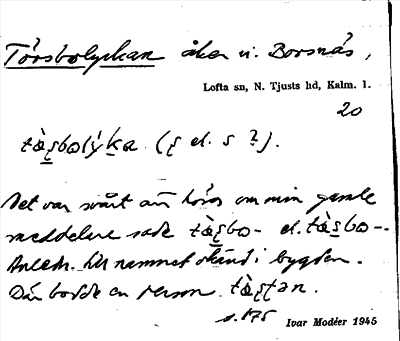 Torsbolyckan åker v. Borsnäs,
Lofta sn, N. Tjusts hd, Kalm. l.
20
(ʂ el. s ?).
Det var svårt att höra om min gamle
meddelare sade tàʂbo- el. tàsbo-.
namnet okänd i bygden.
Där bodde en person
s. 175
Ivar Modéer 1945